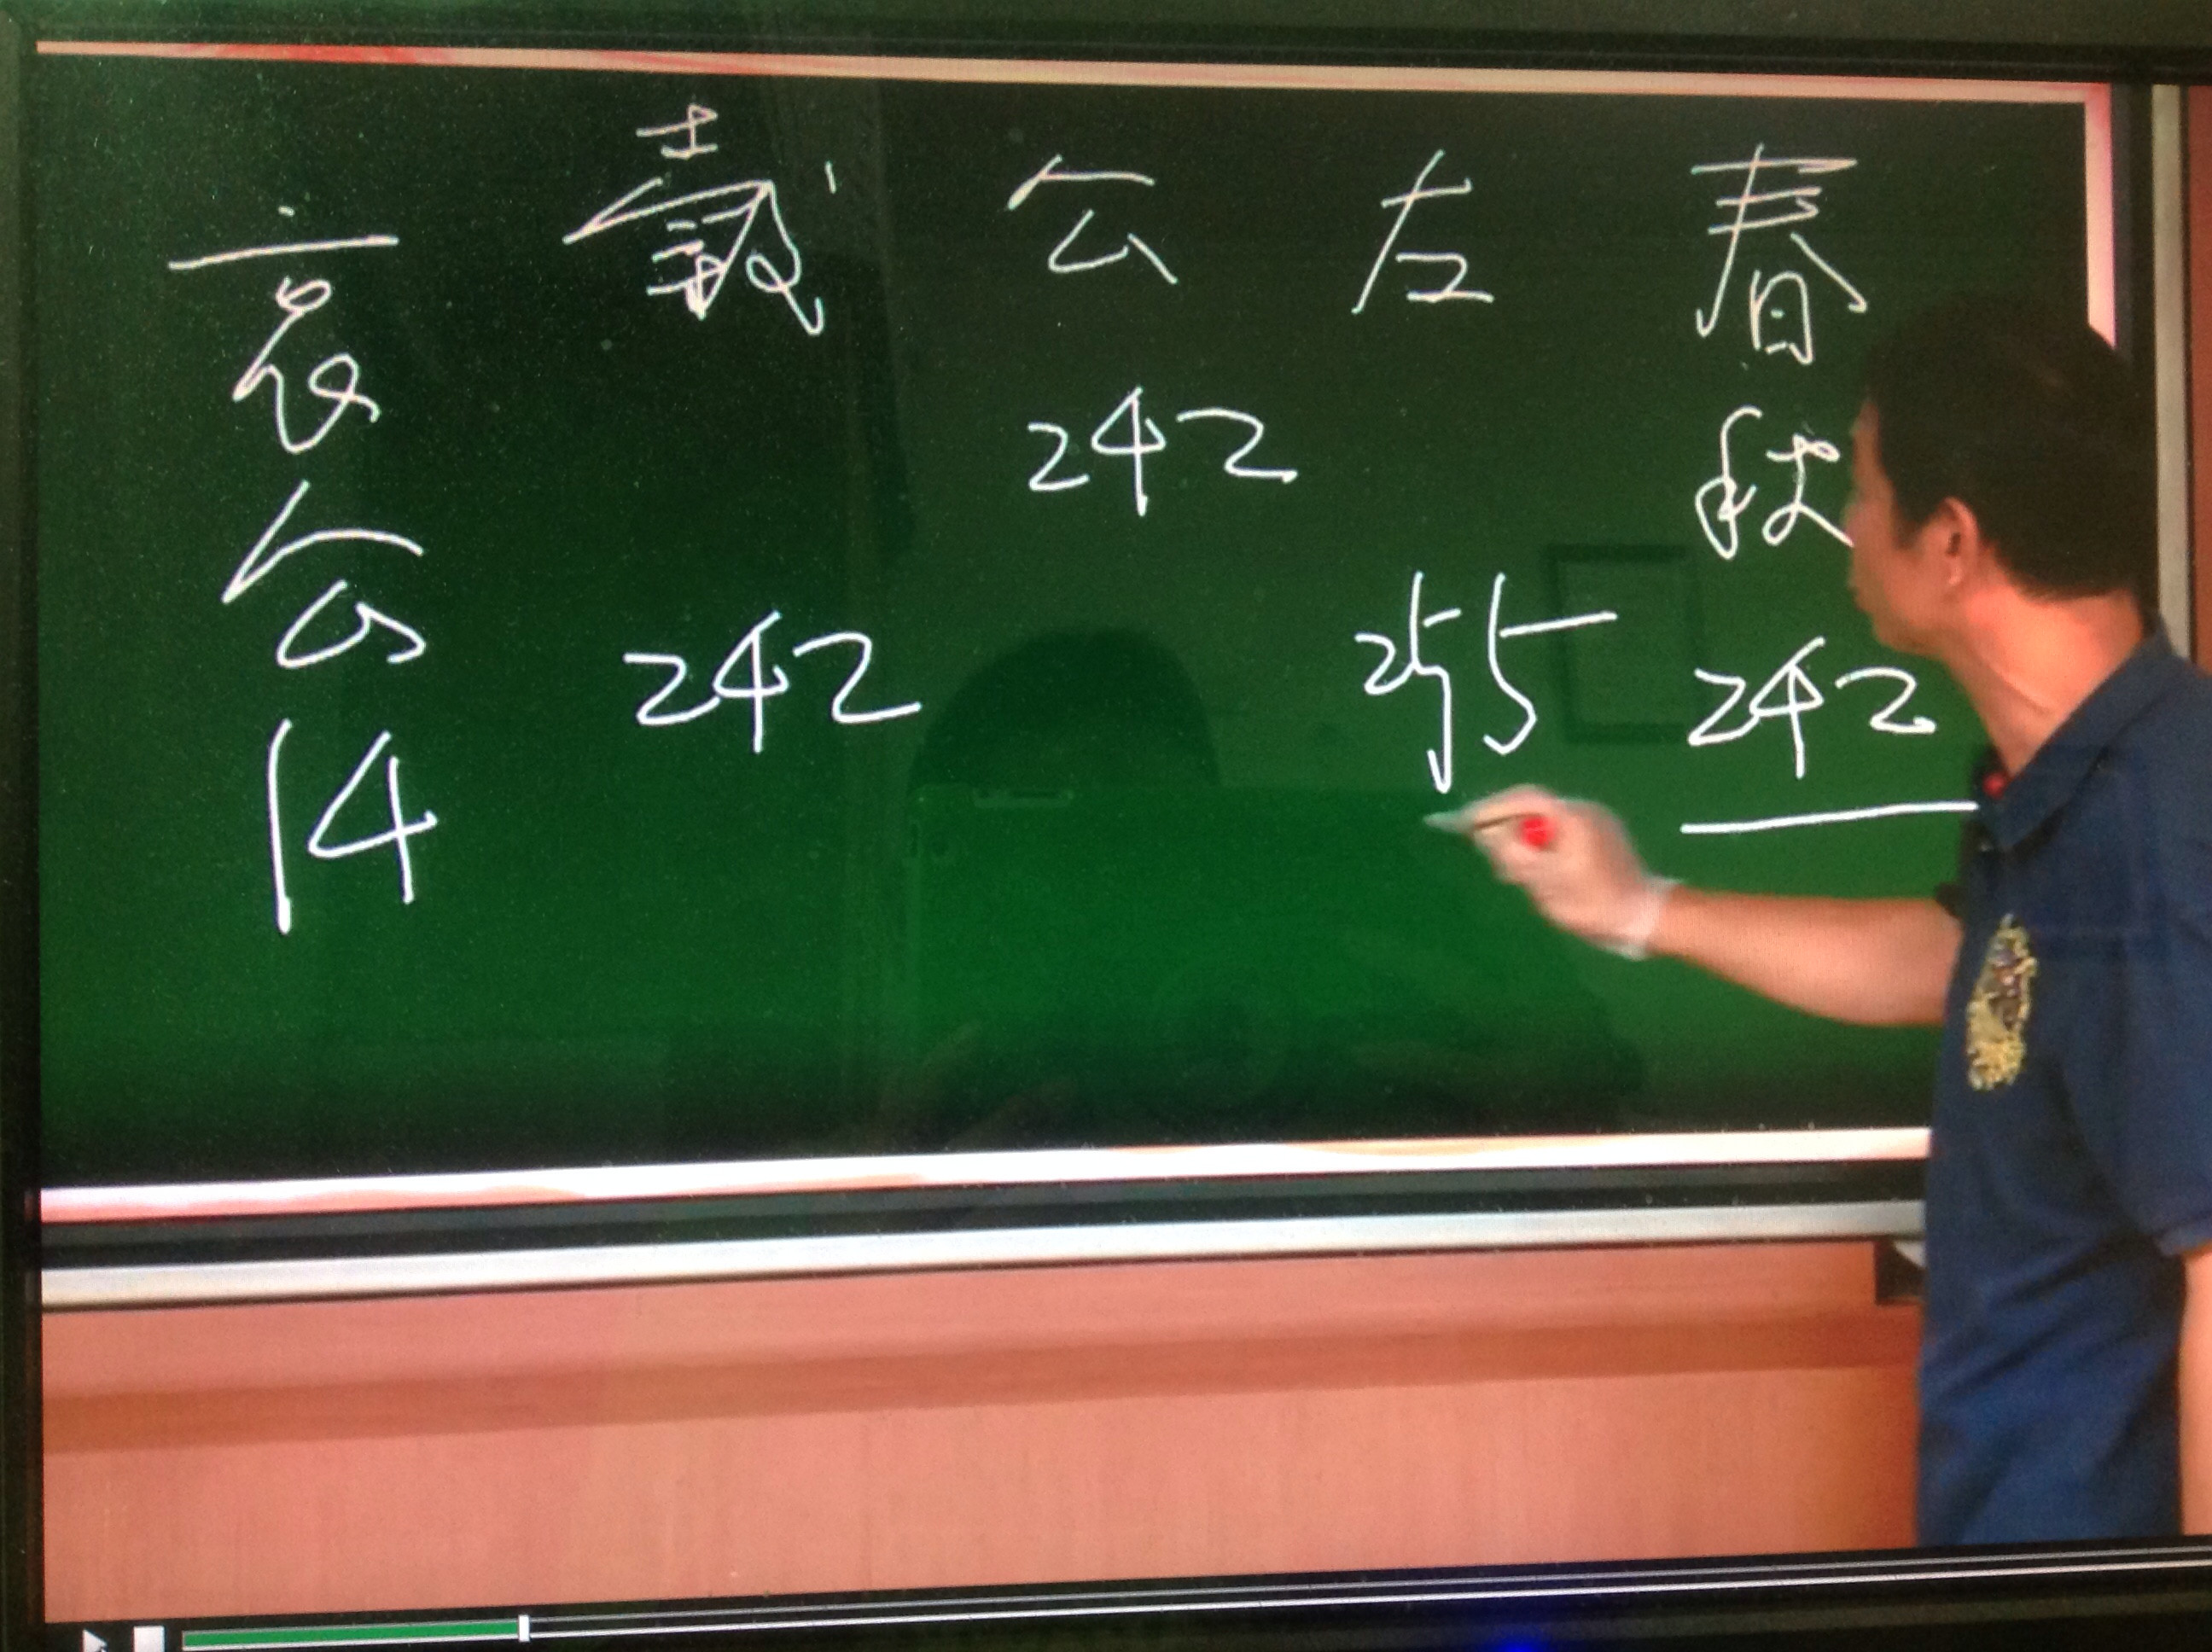 春秋
242
左
255
公
242
穀
242
哀公
14